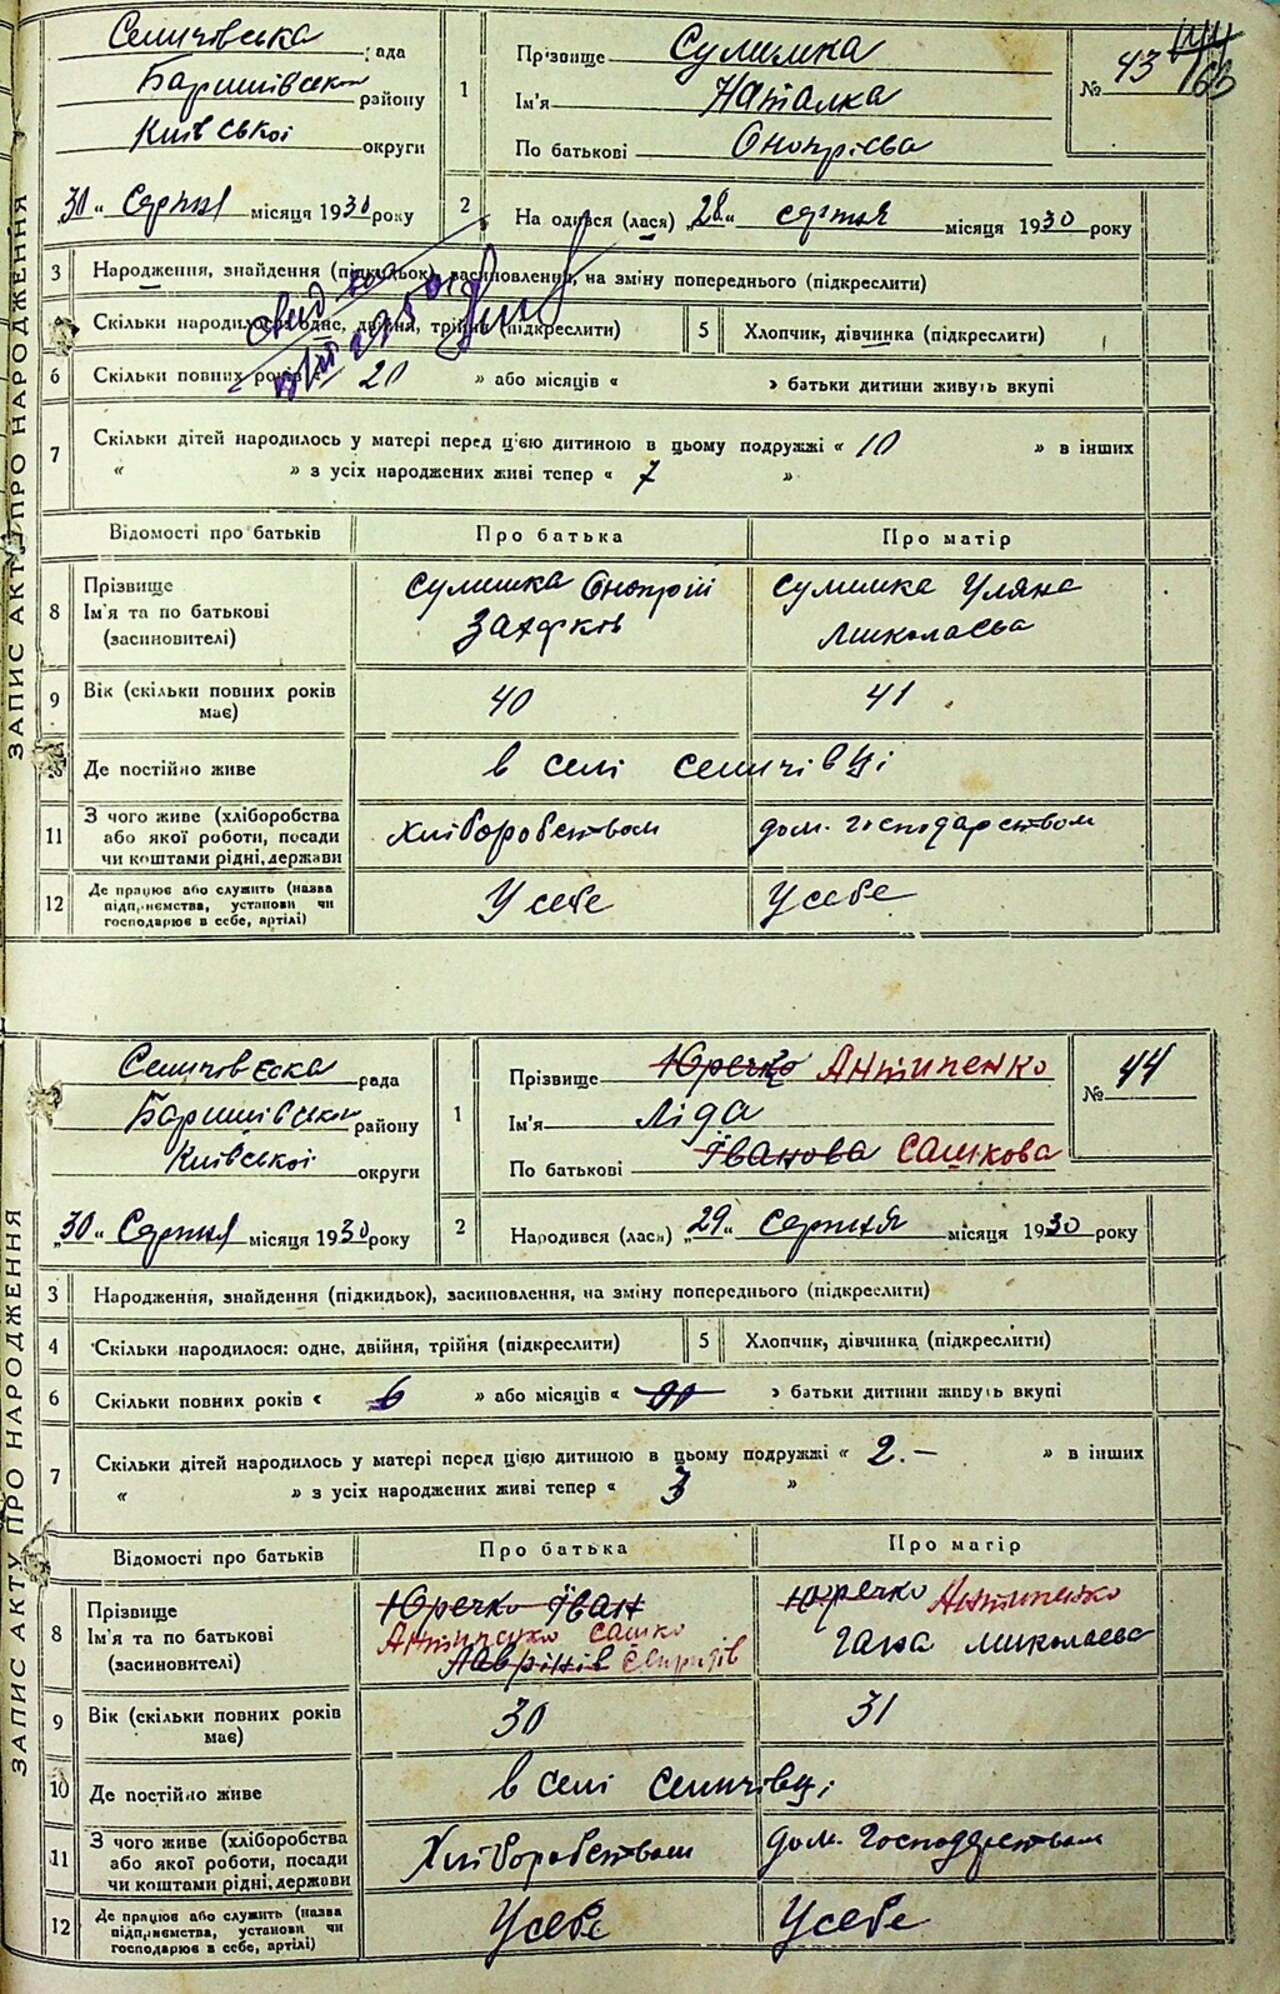 ЗАПИС АКТУ ПРО НАРОДЖЕННЯ
Селичівська рада
Баришівськ району
Київської округи
"30" Серпня місяця 1930 року
1
Прізвище Сулимка
Ім'я Наталка
По батькові Онопрієва
№ 43
144
163
2 На одився (лася) "28" серпня місяця 1930 року
3 Народження, знайдення (підкидьок), засиновлення, на зміну попереднього (підкреслити)
Скільки народилося: одне, двійня, трійня (підкреслити) 5 Хлопчик, дівчинка (підкреслити)
6 Скільки повних років « 20 » або місяців « » батьки дитини живуть вкупі
7 Скільки дітей народилось у матері перед цією дитиною в цьому подружжі « 10 » в інших
« » з усіх народжених живі тепер « 7 »
Відомості про батьків Про батька Про матір
8 Прізвище Ім'я та по батькові (засиновителі)
Сулимка Онопрій Захарків
Сулимка Уляна Миколаєва
9 Вік (скільки повних років має) 40 41
Де постійно живе в селі Селичівці
11 З чого живе (хліборобства або якої роботи, посади чи коштами рідні, держави
Хліборобством дом. господарством
12 Де працює або служить (назва підприємства, установи чи господарює в себе, артілі)
У себе У себе
ЗАПИС АКТУ ПРО НАРОДЖЕННЯ
Селичівська рада
Баришівськ району
Київської округи
"30" Серпня місяця 1930 року
1
Прізвище Юречко Антипенко
Ім'я Ліда
По батькові Іванова Сашкова
№ 44
2 Народився (лася) "29" Серпня місяця 1930 року
3 Народження, знайдення (підкидьок), засиновлення, на зміну попереднього (підкреслити)
4 Скільки народилося: одне, двійня, трійня (підкреслити) 5 Хлопчик, дівчинка (підкреслити)
6 Скільки повних років « 6 » або місяців « » батьки дитини живуть вкупі
7 Скільки дітей народилось у матері перед цією дитиною в цьому подружжі « 2.– » в інших
« » з усіх народжених живі тепер « 3 »
Відомості про батьків Про батька Про матір
8 Прізвище Ім'я та по батькові (засиновителі)
Юречко Іван
Антипенко Сашко
Лаврінів Спиридів
Юречко Антипенко
Гана Миколаєва
9 Вік (скільки повних років має) 30 31
10 Де постійно живе в селі Селичівці
11 З чого живе (хліборобства або якої роботи, посади чи коштами рідні, держави
Хліборобством дом. Господарством
12 Де працює або служить (назва підприємства, установи чи господарює в себе, артілі)
У себе У себе